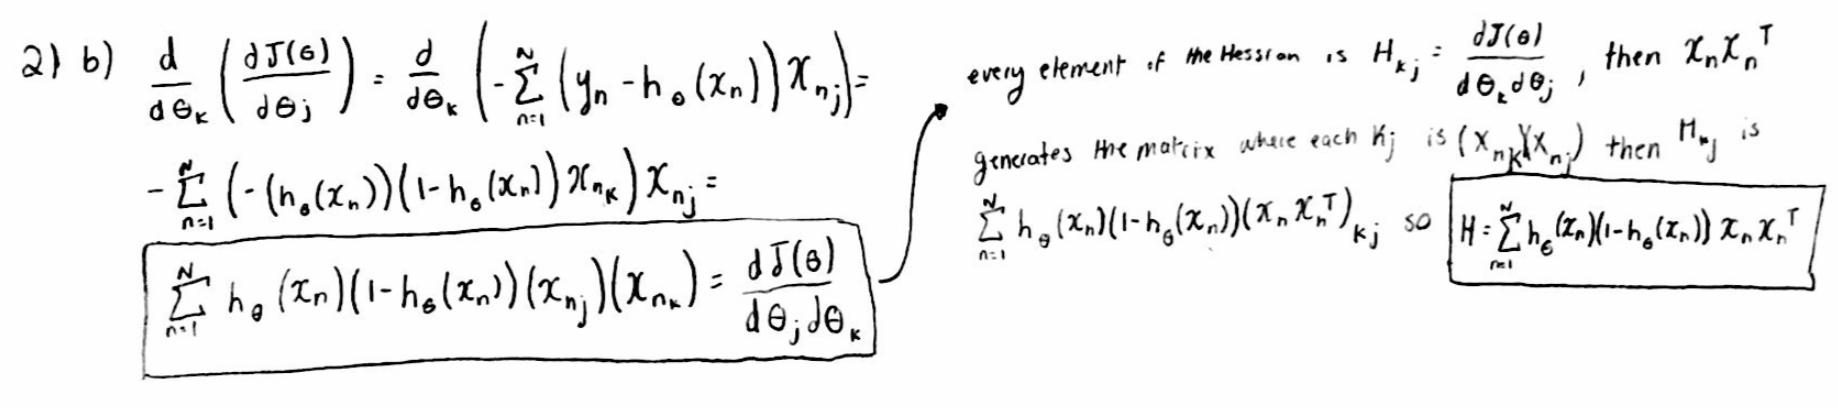 2) b) d/dθ_k (dJ(θ)/dθ_j) = d/dθ_k (-∑_{n=1}^{N} (y_n - h_θ(x_n)) x_{nj}) =
-∑_{n=1}^{N} (-(h_θ(x_n))(1-h_θ(x_n)) x_{nk}) x_{nj} =
∑_{n=1}^{N} h_θ(x_n)(1-h_θ(x_n))(x_{nj})(x_{nk}) = dJ(θ)/dθ_j dθ_k
every element of the Hessian is H_{kj} = dJ(θ)/dθ_k dθ_j, then x_n x_n^T
generates the matrix where each kj is (x_{nk})(x_{nj}) then H_{kj} is
∑_{n=1}^{N} h_θ(x_n)(1-h_θ(x_n))(x_n x_n^T)_{kj} so H = ∑_{n=1}^{N} h_θ(x_n)(1-h_θ(x_n)) x_n x_n^T